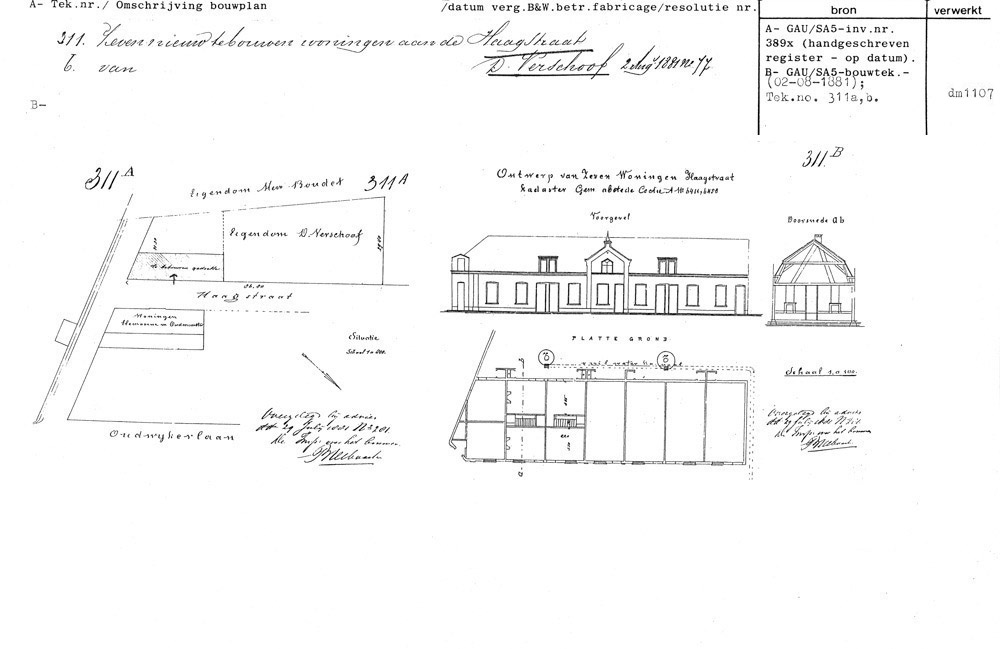 A- Tek.nr./ Omschrijving bouwplan
/datum verg.B&W.betr.fabricage/resolutie nr.
bron
verwerkt
311. Zeven nieuw te bouwen woningen aan de Haagstraat
b. van D. Verschoof 2 Aug 1881 no 77
A- GAU/SA5-inv.nr.
389x (handgeschreven
register - op datum).
B- GAU/SA5-bouwtek.-
(02-08-1881);
Tek.no. 311a,b.
dm1107
B-
311 A
Eigendom Mev Boudet 311 A
Eigendom D. Verschoof
te bebouwen gedeelte
Haagstraat
Woningen
Situatie
Oudwijkerlaan
Overgelegd bij advies
dd 29 July 1881 No 201
De Insp. van het bouwen
311 B
Ontwerp van Zeven Woningen Haagstraat
Kadaster Gem abstede Sectie A No
Voorgevel
Doorsnede a b
PLATTE GROND
Schaal 1 a 100.
Overgelegd bij advies
dd 29 July 1881 N 201
De Insp. van het bouwen